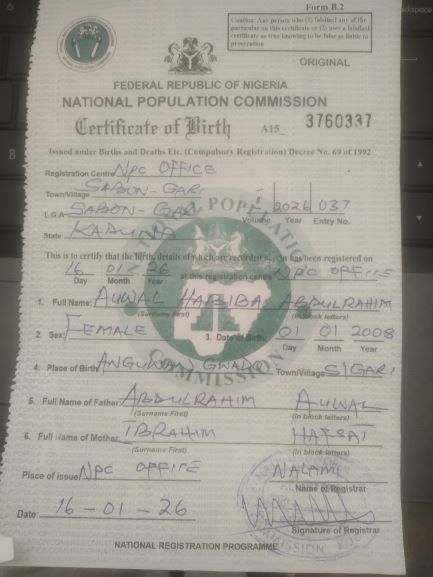 Form B.2
Caution: Any person who (1) falsified any of the
particular on this certificate or (2) uses a falsified
certificate as true knowing to be false is liable to
prosecution
ORIGINAL
FEDERAL REPUBLIC OF NIGERIA
NATIONAL POPULATION COMMISSION
Certificate of Birth A15_ 3760337
Issued under Births and Deaths Etc. (Compulsory Registration) Decree No. 69 of 1992
Registration Centre NPC OFFICE
Town/Village SABON-GARI
L.G.A SABON-GARI 2026 037
Volume Year Entry No.
State KADUNA
This is to certify that the birth, details of which are recorded herein has been registered on
16 01 26 at this registration centre NPC OFFICE
Day Month Year
1. Full Name: AUWAL HABIBA ABDULRAHIM
(Surname First) (In block letters)
2. Sex: FEMALE 3. Date of Birth 01 01 2008
Day Month Year
4. Place of Birth ANGUWAN GWADO Town/Village S/GARI
5. Full Name of Father: ABDULRAHIM AUWAL
(Surname First) (In block letters)
6. Full Name of Mother: IBRAHIM HAFSAT
(Surname First) (In block letters)
Place of issue NPC OFFICE NALAMI
Name of Registrar
Date: 16-01-26
Signature of Registrar
NATIONAL REGISTRATION PROGRAMME